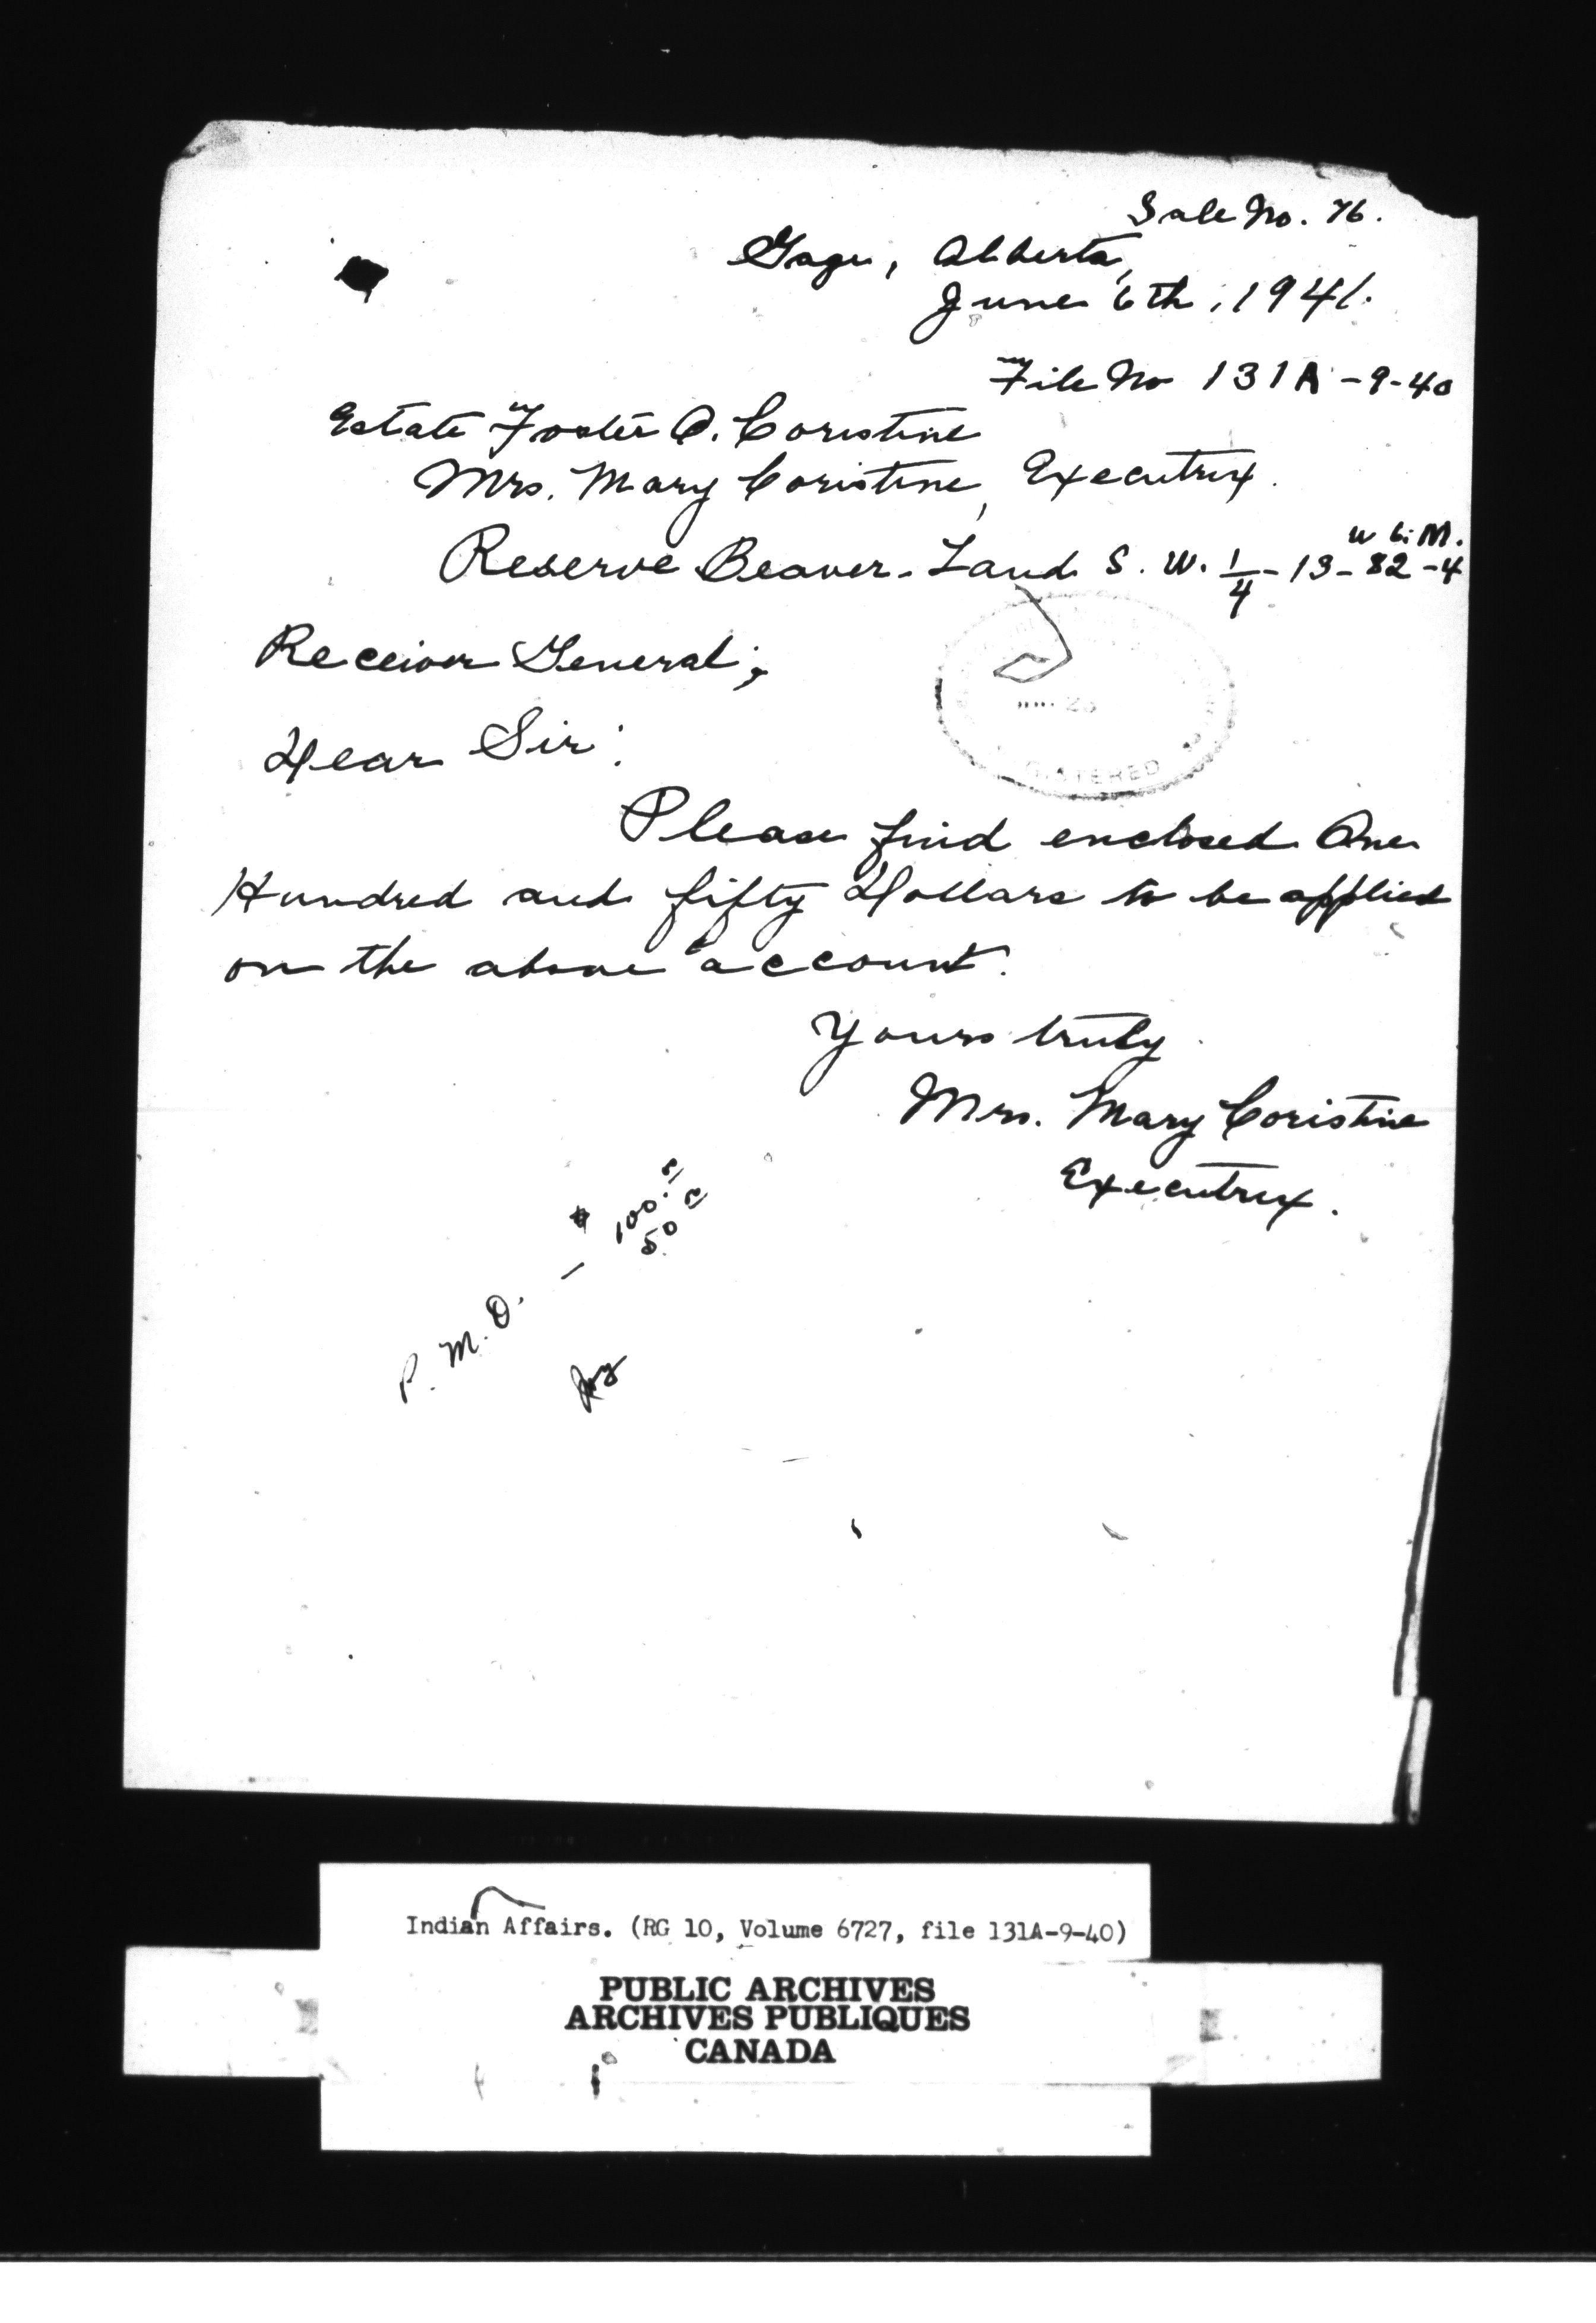 Sale No. 76.
Gage, Alberta,
June 6th, 1941.
File No 131A-9-40
Estate Foster O. Coristine
Mrs. Mary Coristine, Executrix.
W 6. M.
Reserve Beaver. Land S. W. 1/4-13-82-4
Receiver General;
Dear Sir:
Please find enclosed One
Hundred and fifty Dollars to be applied
on the above account.
Yours truly
Mrs. Mary Coristine
Executrix.
P. M. O. - 100.
50
Indian Affairs. (RG 10, Volume 6727, file 131A-9-40)
PUBLIC ARCHIVES
ARCHIVES PUBLIQUES
CANADA